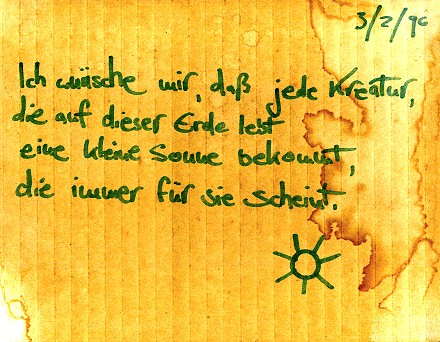 3/2/96
Ich wünsche mir, daß jede Kreatur,
die auf dieser Erde lebt
eine kleine Sonne bekommt,
die immer für sie scheint.